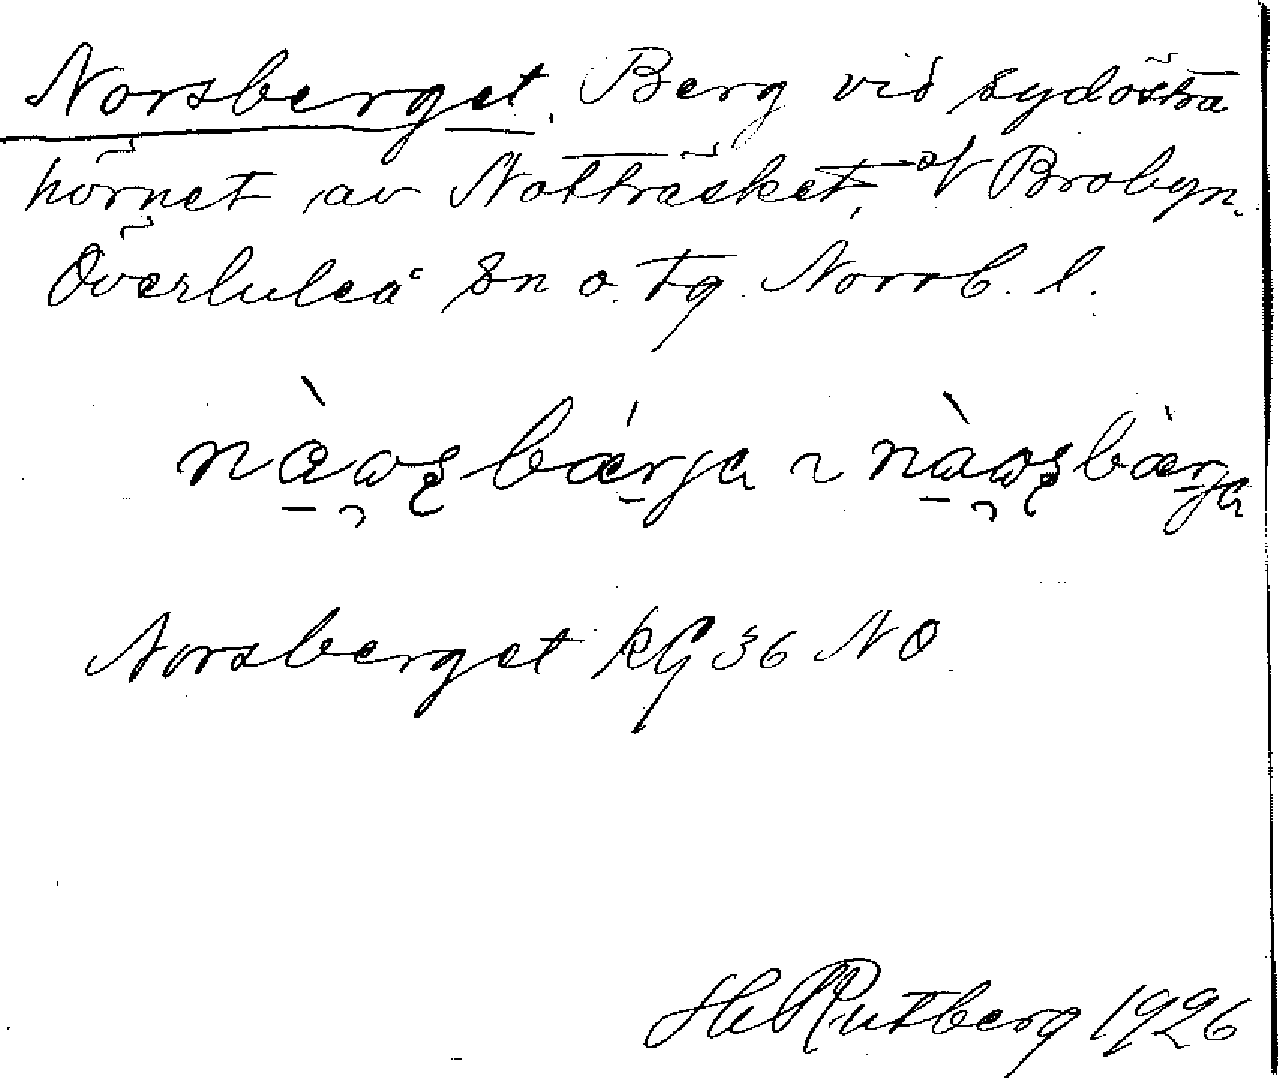 Norsberget. Berg vid sydöstra
hörnet av Notträsket, of Brobyn.
Överluleå sn o. tg. Norrb. l.
Norsberget KG 36 NO
H Rutberg 1926